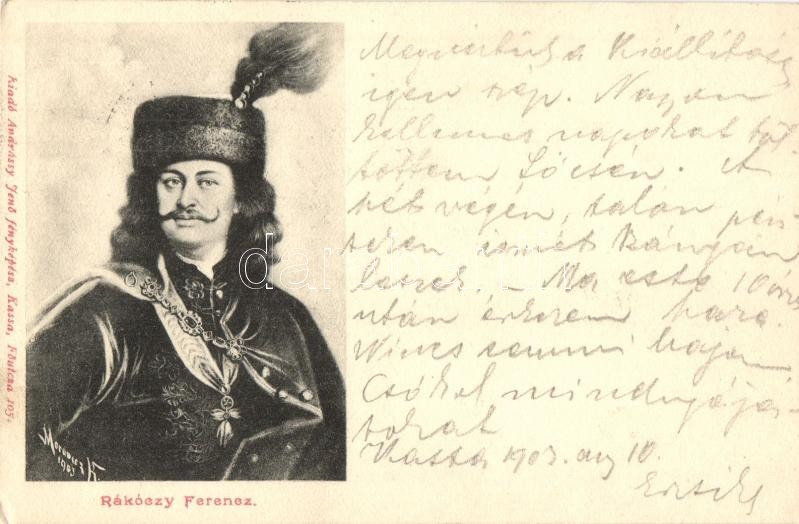 Kiadó Andrássy Jenő fényképész, Kassa, Főutcza 105.
Moravesz K.
1903
Rákóczy Ferencz.
Megnéztük a Kiállítást
igen szép. Nagyon
kellemes napokat töl-
töttem Lőcsén. A
hét végén, talán pén-
teken ismét Bányán
leszek. – Ma este 10 óra
után érkezem haza.
Nincs semmi bajom
Csókol mindnyája-
tokat
Kassa 1903. aug 10.
Erzsike
dar